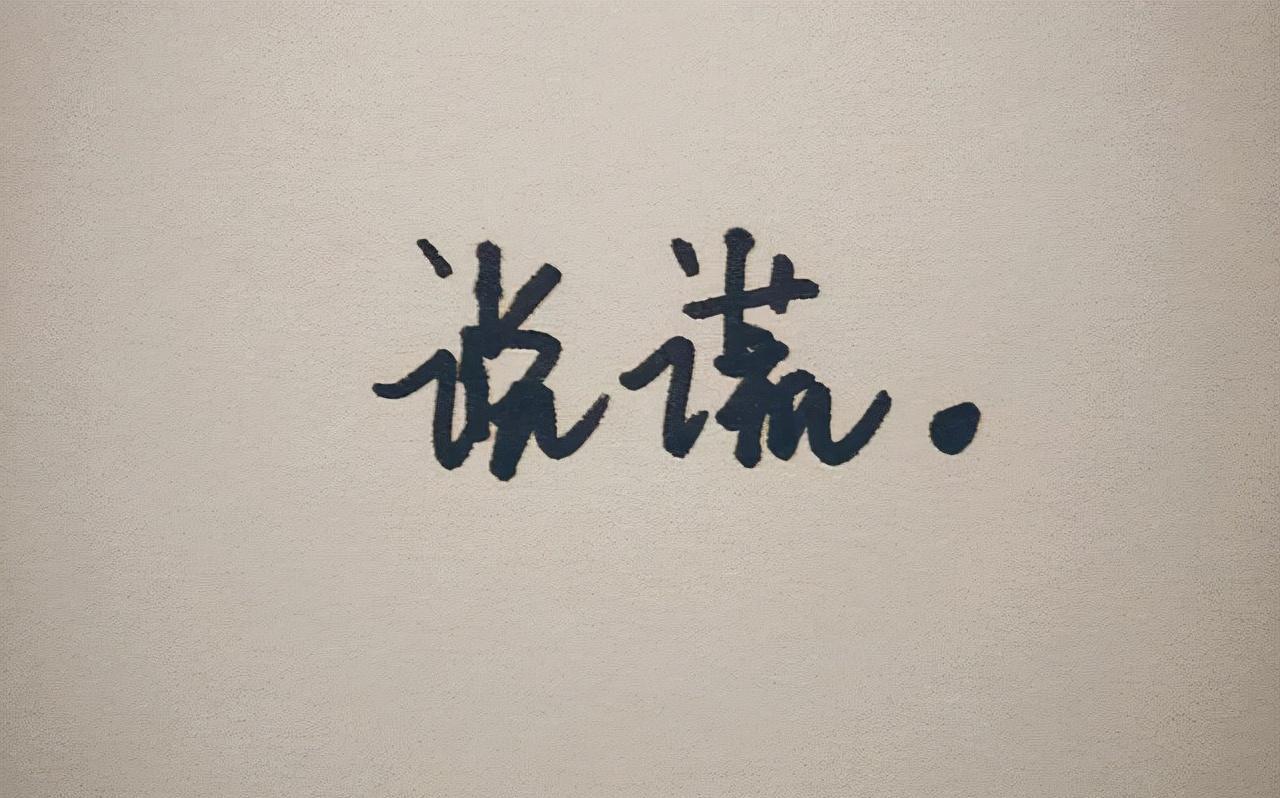 说谎.